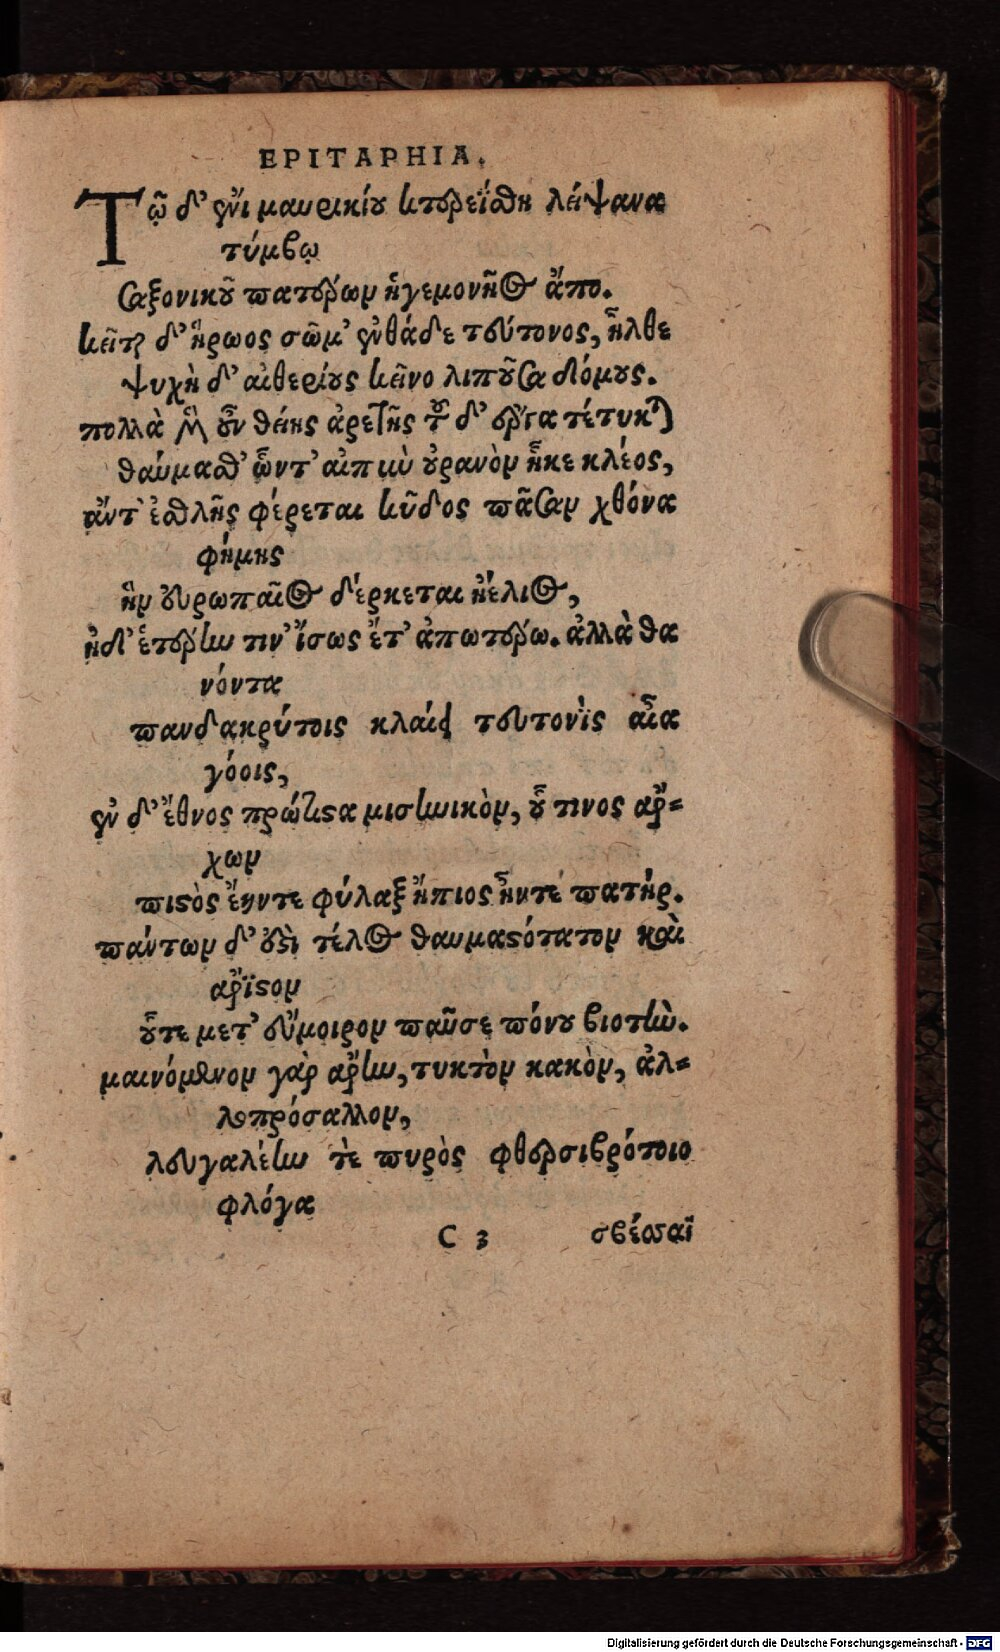 EPITAPHIA.
Τῷ δ' ἐνὶ μαυρικίου κτερεΐσθη λείψανα
τύμβῳ
Σαξονικοῦ πατέρων ἡγεμονῆος ἄπο.
κεῖται δ' ἥρωος σῶμ' ἐνθάδε τεύτονος, ἦλθε
ψυχὴ δ' αἰθερίους κεῖνο λιποῦσα δόμους.
πολλὰ μὲν οὖν θείης ἀρετῆς τοῦ δ' ἔργα τέτυκται
θαύμασθ' ὧντ' αἰπὺ οὐρανὸν ἧκε κλέος,
ἀντ' ἐσθλῆς φέρεται κῦδος πᾶσαν χθόνα
φήμης
ἣν εὐρωπαῖος δέρκεται ἠέλιος,
ἠδ' ἑτέρην τιν' ἴσως ἔτ' ἀπωτέρω. ἀλλὰ θα
νόντα
πανδακρύτοις κλαίει τευτονὶς αἶα
γόοις,
ἐν δ' ἔθνος πρώτιστα μισηνικὸν, οὗ τινος ἄρ-
χων
πιστὸς ἔηντε φύλαξ ἤπιος ἦντε πατήρ.
πάντων δ' ἐστὶ τέλος θαυμαστότατον καὶ
ἄριστον
οὗτε μετ' εὔμοιρον παῦσε πόνου βιοτήν.
μαινόμενον γὰρ ἄρην, τυκτὸν κακὸν, ἀλ-
λοπρόσαλλον,
λευγαλέην τὲ πυρὸς φθερσιβρότοιο
φλόγα
C 3 σβέσσαϊ
Digitalisierung gefördert durch die Deutsche Forschungsgemeinschaft - DFG